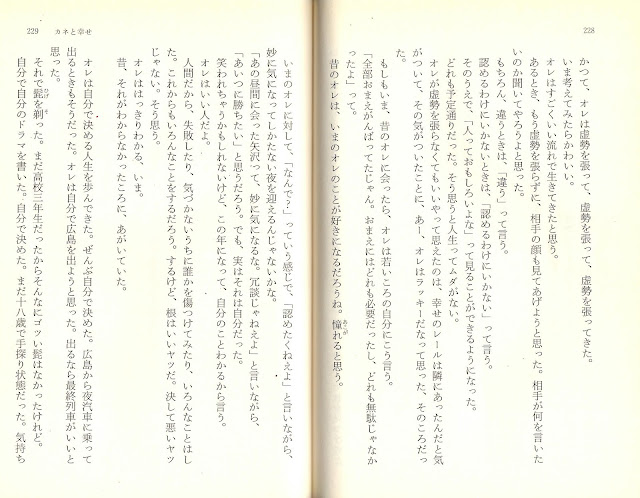 228
かつて、オレは虚勢を張って、虚勢を張って、虚勢を張ってきた。
いま考えてみたらかわいい。
オレはすごくいい流れで生きてきたと思う。
あるとき、もう虚勢を張らずに、相手の顔も見てあげようと思った。相手が何を言いた
いのか聞いてやろうよと思った。
もちろん、違うときは、「違う」って言う。
認めるわけにいかないときは、「認めるわけにいかない」って言う。
そのうえで、「人っておもしろいよな」って見ることができるようになった。
どれも予定通りだった。そう思うと人生ってムダがない。
オレが虚勢を張らなくてもいいやって思えたのは、幸せのレールは隣にあったんだと気
がついて、その気がついたことに、あー、オレはラッキーだなって思った、そのころだっ
た。
もしもいま、昔のオレに会ったら、オレは若いころの自分にこう言う。
「全部おまえがんばってたじゃん。おまえにはどれも必要だったし、どれも無駄じゃなか
ったよ」って。
昔のオレは、いまのオレのことが好きになるだろうね。憧れると思う。
229 カネと幸せ
いまのオレに対して、「なんで?」っていう感じで、「認めたくねえよ」と言いながら、
妙に気になってしかたない夜を迎えるんじゃないかな。
「あの昼間に会った矢沢って、妙に気になるな。冗談じゃねえよ」と言いながら、
「あいつに勝ちたい」と思うだろう。でも、実はそれは自分だった。
笑われちゃうかもしれないけど、この年になって、自分のことわかるから言う。
オレはいい人だよ。
人間だから、失敗したり、気づかないうちに誰かを傷つけてみたり、いろんなことはし
た。これからもいろんなことをするだろう。するけど、根はいいヤツだ。決して悪いヤツ
じゃない。そう思う。
オレははっきりわかる、いま。
昔、それがわからなかったころに、あがいていた。
オレは自分で決める人生を歩んできた。ぜんぶ自分で決めた。広島から夜汽車に乗って
出るときもそうだった。オレは自分で広島を出ようと思った。出るなら最終列車がいいと
思った。
それで髭を剃った。まだ高校三年生だったからそんなにゴツい髭はなかったけれど。
自分で自分のドラマを書いた。自分で決めた。まだ十八歳で手探り状態だった。気持ち